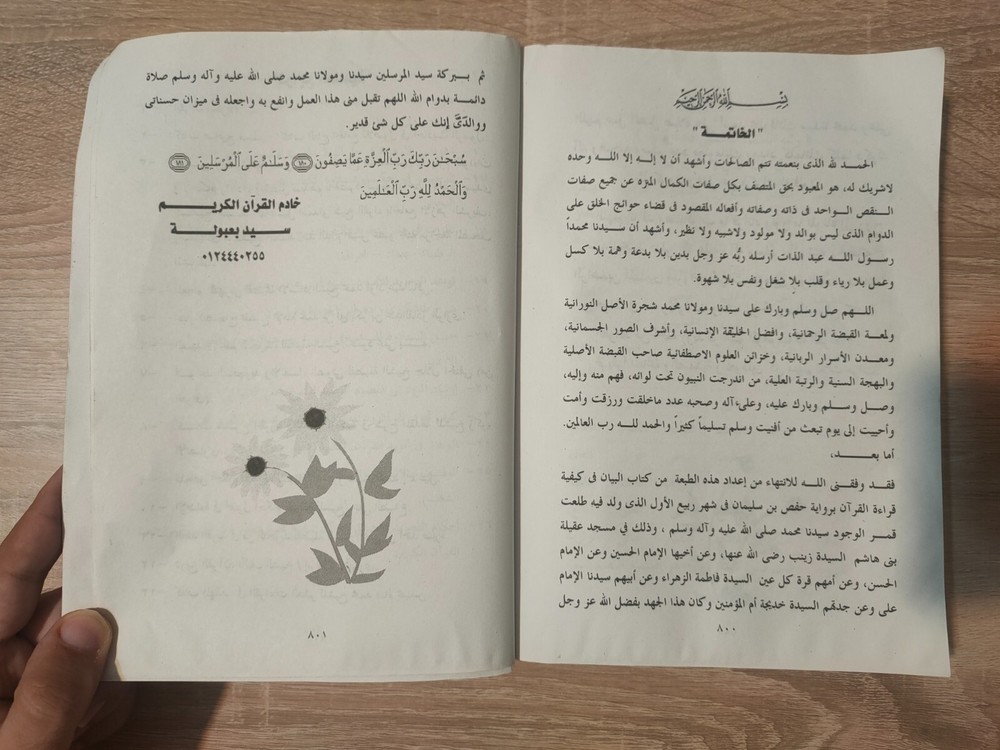 بسم الله الرحمن الرحيم
"الخاتمـــة"
الحمـد لله الذى بنعمته تتم الصالحات وأشهد أن لا إلـه إلا اللـه وحده
لاشريك له، هو المعبود بحق المتصف بكل صفات الكمال المنزه عن جميع صفات
النقص الواحد فى ذاته وصفاته وأفعاله المقصود فى قضاء حوائج الخلق على
الدوام الذى ليس بوالد ولا مولود ولاشبيه ولا نظير، وأشهد أن سيدنا محمداً
رسول اللـه عبد الذات أرسله ربُّه عز وجل بدين بلا بدعة وهمة بلا كسل
وعمل بلا رياء وقلب بلا شغل ونفس بلا شهوة.
اللـهم صل وسلم وبارك على سيدنا ومولانا محمد شجرة الأصل النورانية
ولمعة القبضة الرحمانية، وافضل الخليقة الإنسانية، وأشرف الصور الجسمانية،
ومعدن الأسرار الربانية، وخزائن العلوم الاصطفائية صاحب القبضة الأصلية
والبهجة السنية والرتبة العلية، من اندرجت النبيون تحت لوائه، فهم منه وإليه،
وصل وسلم وبارك عليه، وعلى آله وصحبه عدد ماخلقت ورزقت وأمت
وأحييت إلى يوم تبعث من أفنيت وسلم تسليماً كثيراً والحمد للـه رب العالمين.
أما بعـــد،
فقـد وفقنى اللـه للانتهاء من إعداد هذه الطبعة من كتاب البيان فى كيفية
قراءة القرآن برواية حفص بن سليمان فى شهر ربيع الأول الذى ولد فيه طلعت
قمـر الوجود سيدنا محمد صلى الله عليه وآله وسلم ، وذلك في مسجد عقيلة
بنى هاشم السيدة زينب رضى الله عنها، وعن أخيها الإمام الحسين وعن الإمام
الحسن، وعن أمهم قرة كل عين السيدة فاطمة الزهراء وعن أبيهم سيدنا الإمام
على وعن جدتهم السيدة خديجة أم المؤمنين وكان هذا الجهد بفضل الله عز وجل
٨٠٠
ثم بـبركة سيد المرسلين سيدنا ومولانا محمد صلى الله عليه وآله وسلم صلاة
دائمـة بدوام الله اللهم تقبل منى هذا العمل وانفع به واجعله فى ميزان حسناتى
ووالدىَّ إنك على كل شئ قدير.
سُبْحَـٰنَ رَبِّكَ رَبِّ ٱلْعِزَّةِ عَمَّا يَصِفُونَ ١٨٠ وَسَلَـٰمٌ عَلَى ٱلْمُرْسَلِينَ ١٨١
وَٱلْحَمْدُ لِلَّهِ رَبِّ ٱلْعَـٰلَمِينَ
خادم القرآن الكريـــم
سـيـد بـعـبولـــة
٠١٢٤٤٤٠٢٥٥
٨٠١